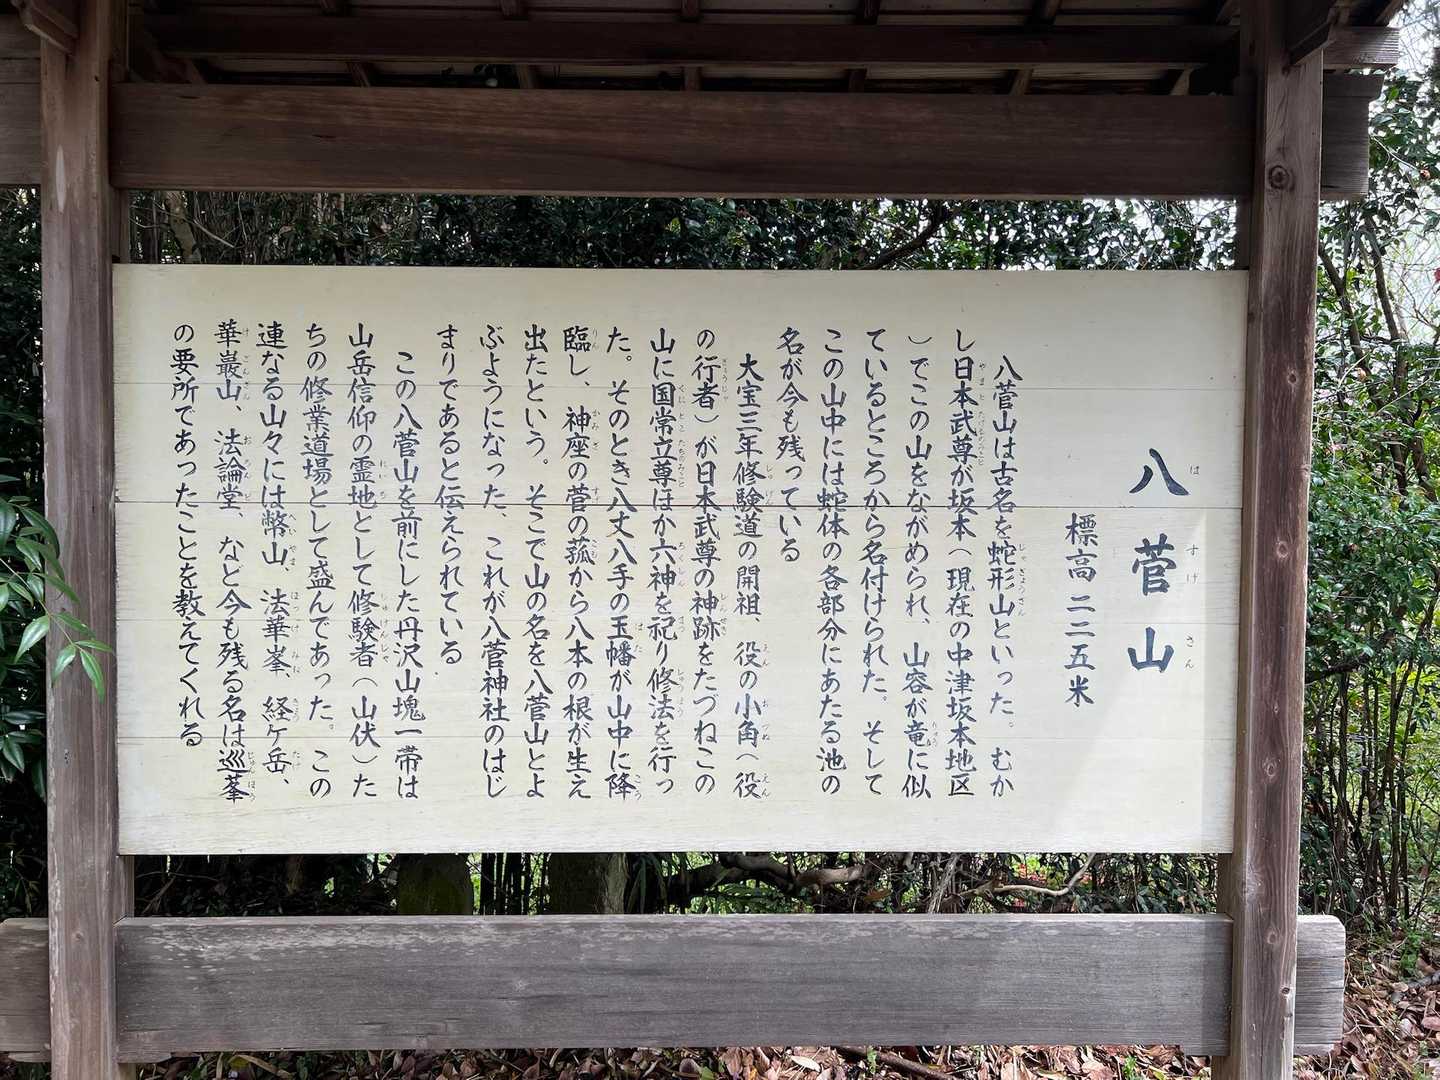 八菅山
標高 二二五米
八菅山は古名を蛇形山といった。むか
し日本武尊が坂本(現在の中津坂本地区
)でこの山をながめられ、山容が竜に似
ているところから名付けられた。そして
この山中には蛇体の各部分にあたる池の
名が今も残っている
大宝三年修験道の開祖、役の小角(役
の行者)が日本武尊の神跡をたづねこの
山に国常立尊ほか六神を祀り修法を行っ
た。そのとき八丈八手の玉幡が山中に降
臨し、神座の菅の菰から八本の根が生え
出たという。そこで山の名を八菅山とよ
ぶようになった これが八菅神社のはじ
まりであると伝えられている
この八菅山を前にした丹沢山塊一帯は
山岳信仰の霊地として修験者(山伏)た
ちの修業道場として盛んであった。この
連なる山々には幣山、法華峯、経ケ岳、
華巌山、法論堂、など今も残る名は巡峯
の要所であったことを教えてくれる